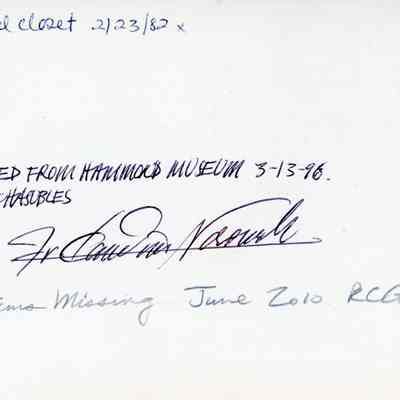 closet 2/23/82 x
ED FROM HAMMOND MUSEUM 3-13-96.
CHASUBLES
Fr
ems Missing June 2010 RCG